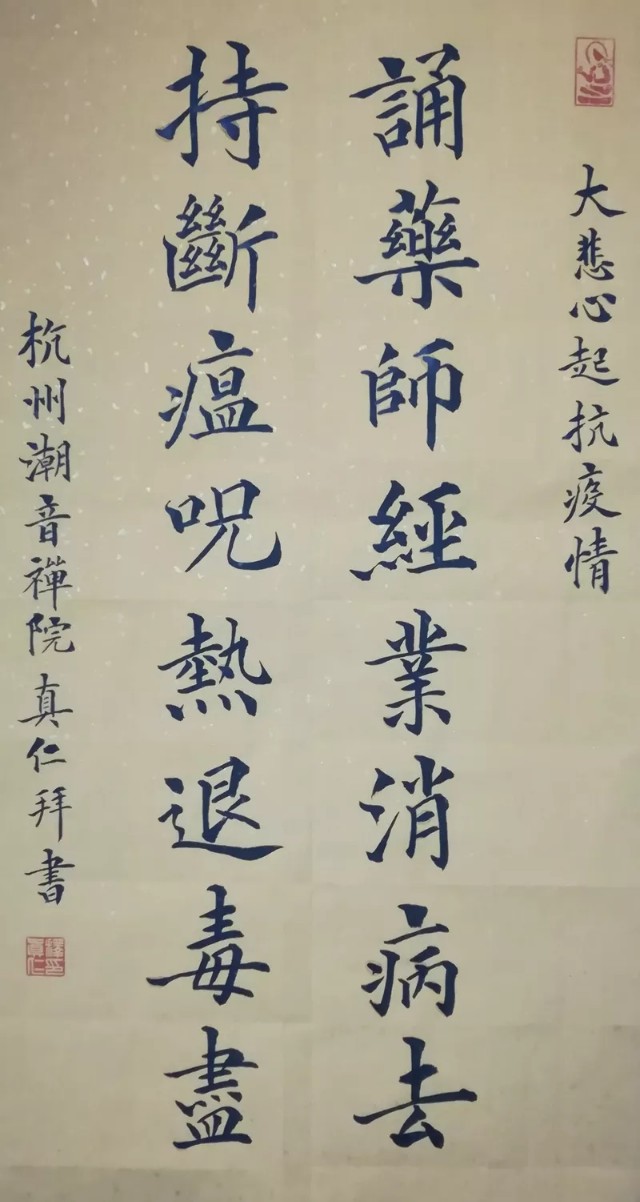 大悲心起抗疫情
誦藥師經業消病去
持斷瘟呪熱退毒盡
杭州潮音禪院真仁拜書